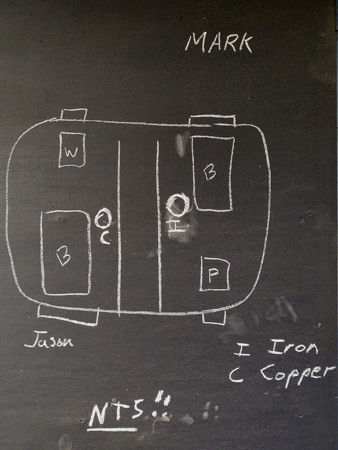 MARK
W
B
C
I
B
P
Jason
I Iron
C Copper
NTS!!